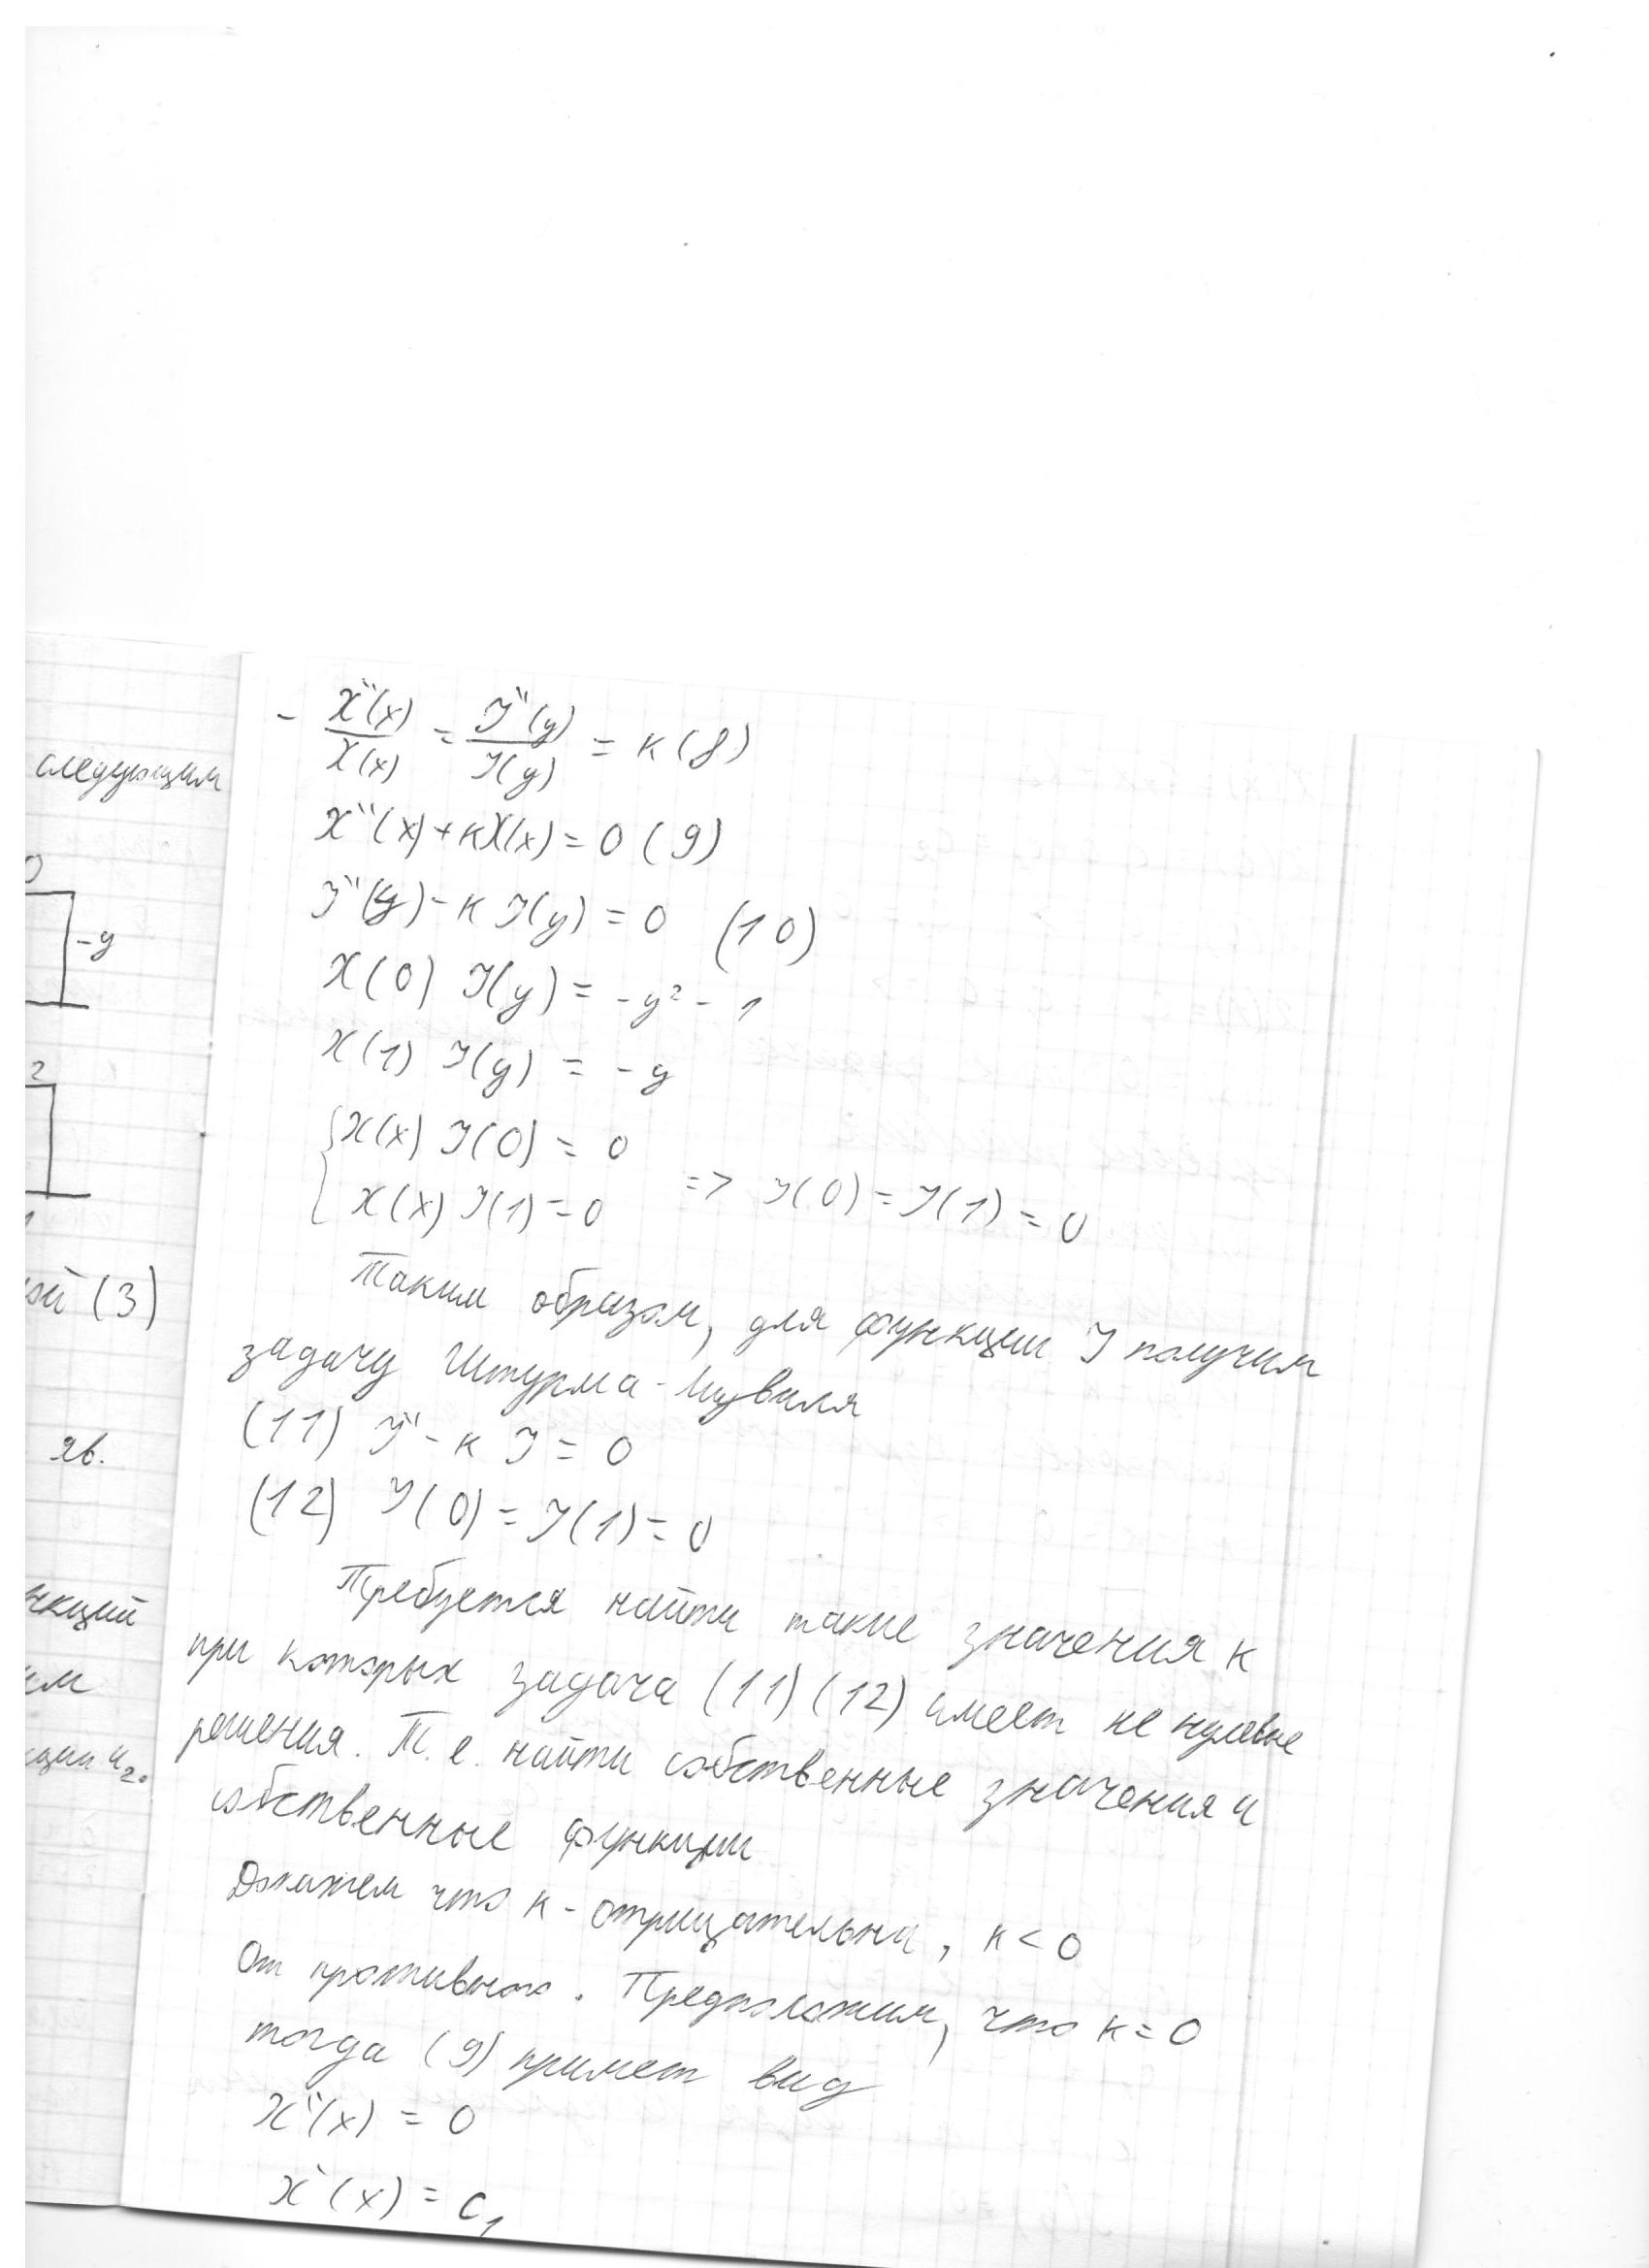 следующим
0
-y
2
1
ой (3)
яв.
нкций
им
ции u₂.
- X''(x)/X(x) = Y''(y)/Y(y) = к (8)
X''(x) + кX(x) = 0 (9)
Y''(y) - к Y(y) = 0 (10)
X(0) Y(y) = -y² - 1
X(1) Y(y) = -y
{ X(x) Y(0) = 0
X(x) Y(1) = 0 => Y(0) = Y(1) = 0
Таким образом, для функции Y получим
задачу Штурма-Лиувиля
(11) Y'' - к Y = 0
(12) Y(0) = Y(1) = 0
Требуется найти такие значения к
при которых задача (11) (12) имеет не нулевые
решения. Т.е. найти собственные значения и
собственные функции
Докажем что к - отрицательна, к < 0
От противного. Предположим, что к = 0
тогда (9) примет вид
X''(x) = 0
X'(x) = C₁